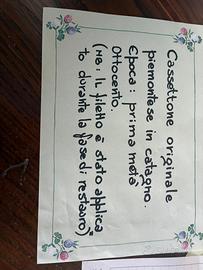 Cassettone originale
piemontese in catagno.
Epoca: prima metà
Ottocento.
(NB: Il filetto è stato applica
to durante la fase di restauro)